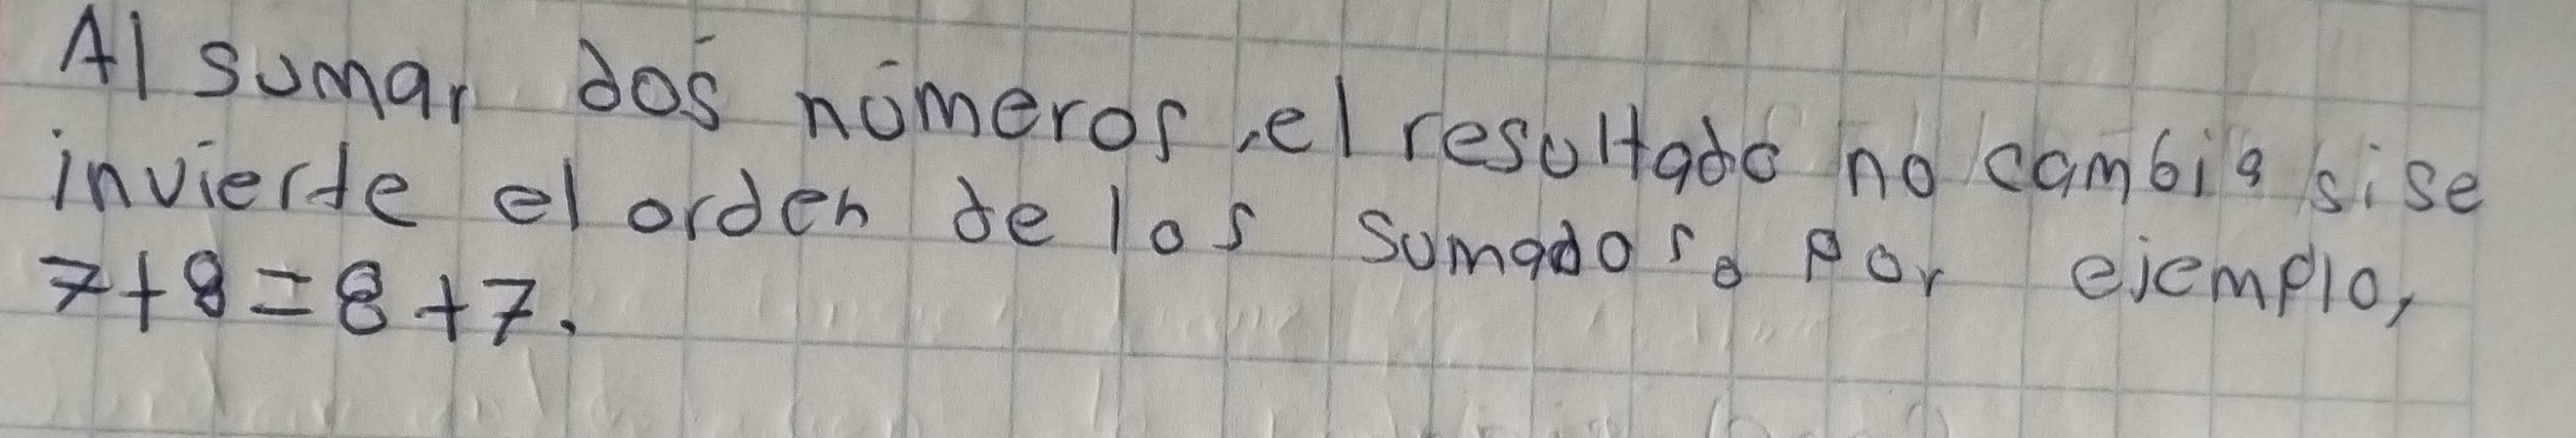 Al sumar dos números, el resultado no cambia si se
invierte el orden de los sumados. Por ejemplo,
7+8=8+7.